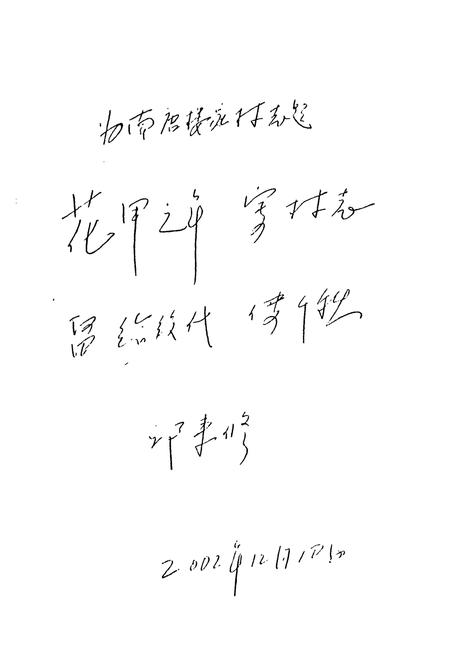 为南唐楼底村志题
花甲之年 写村志
留给后代 传千秋
邓来修
2002年12月1日